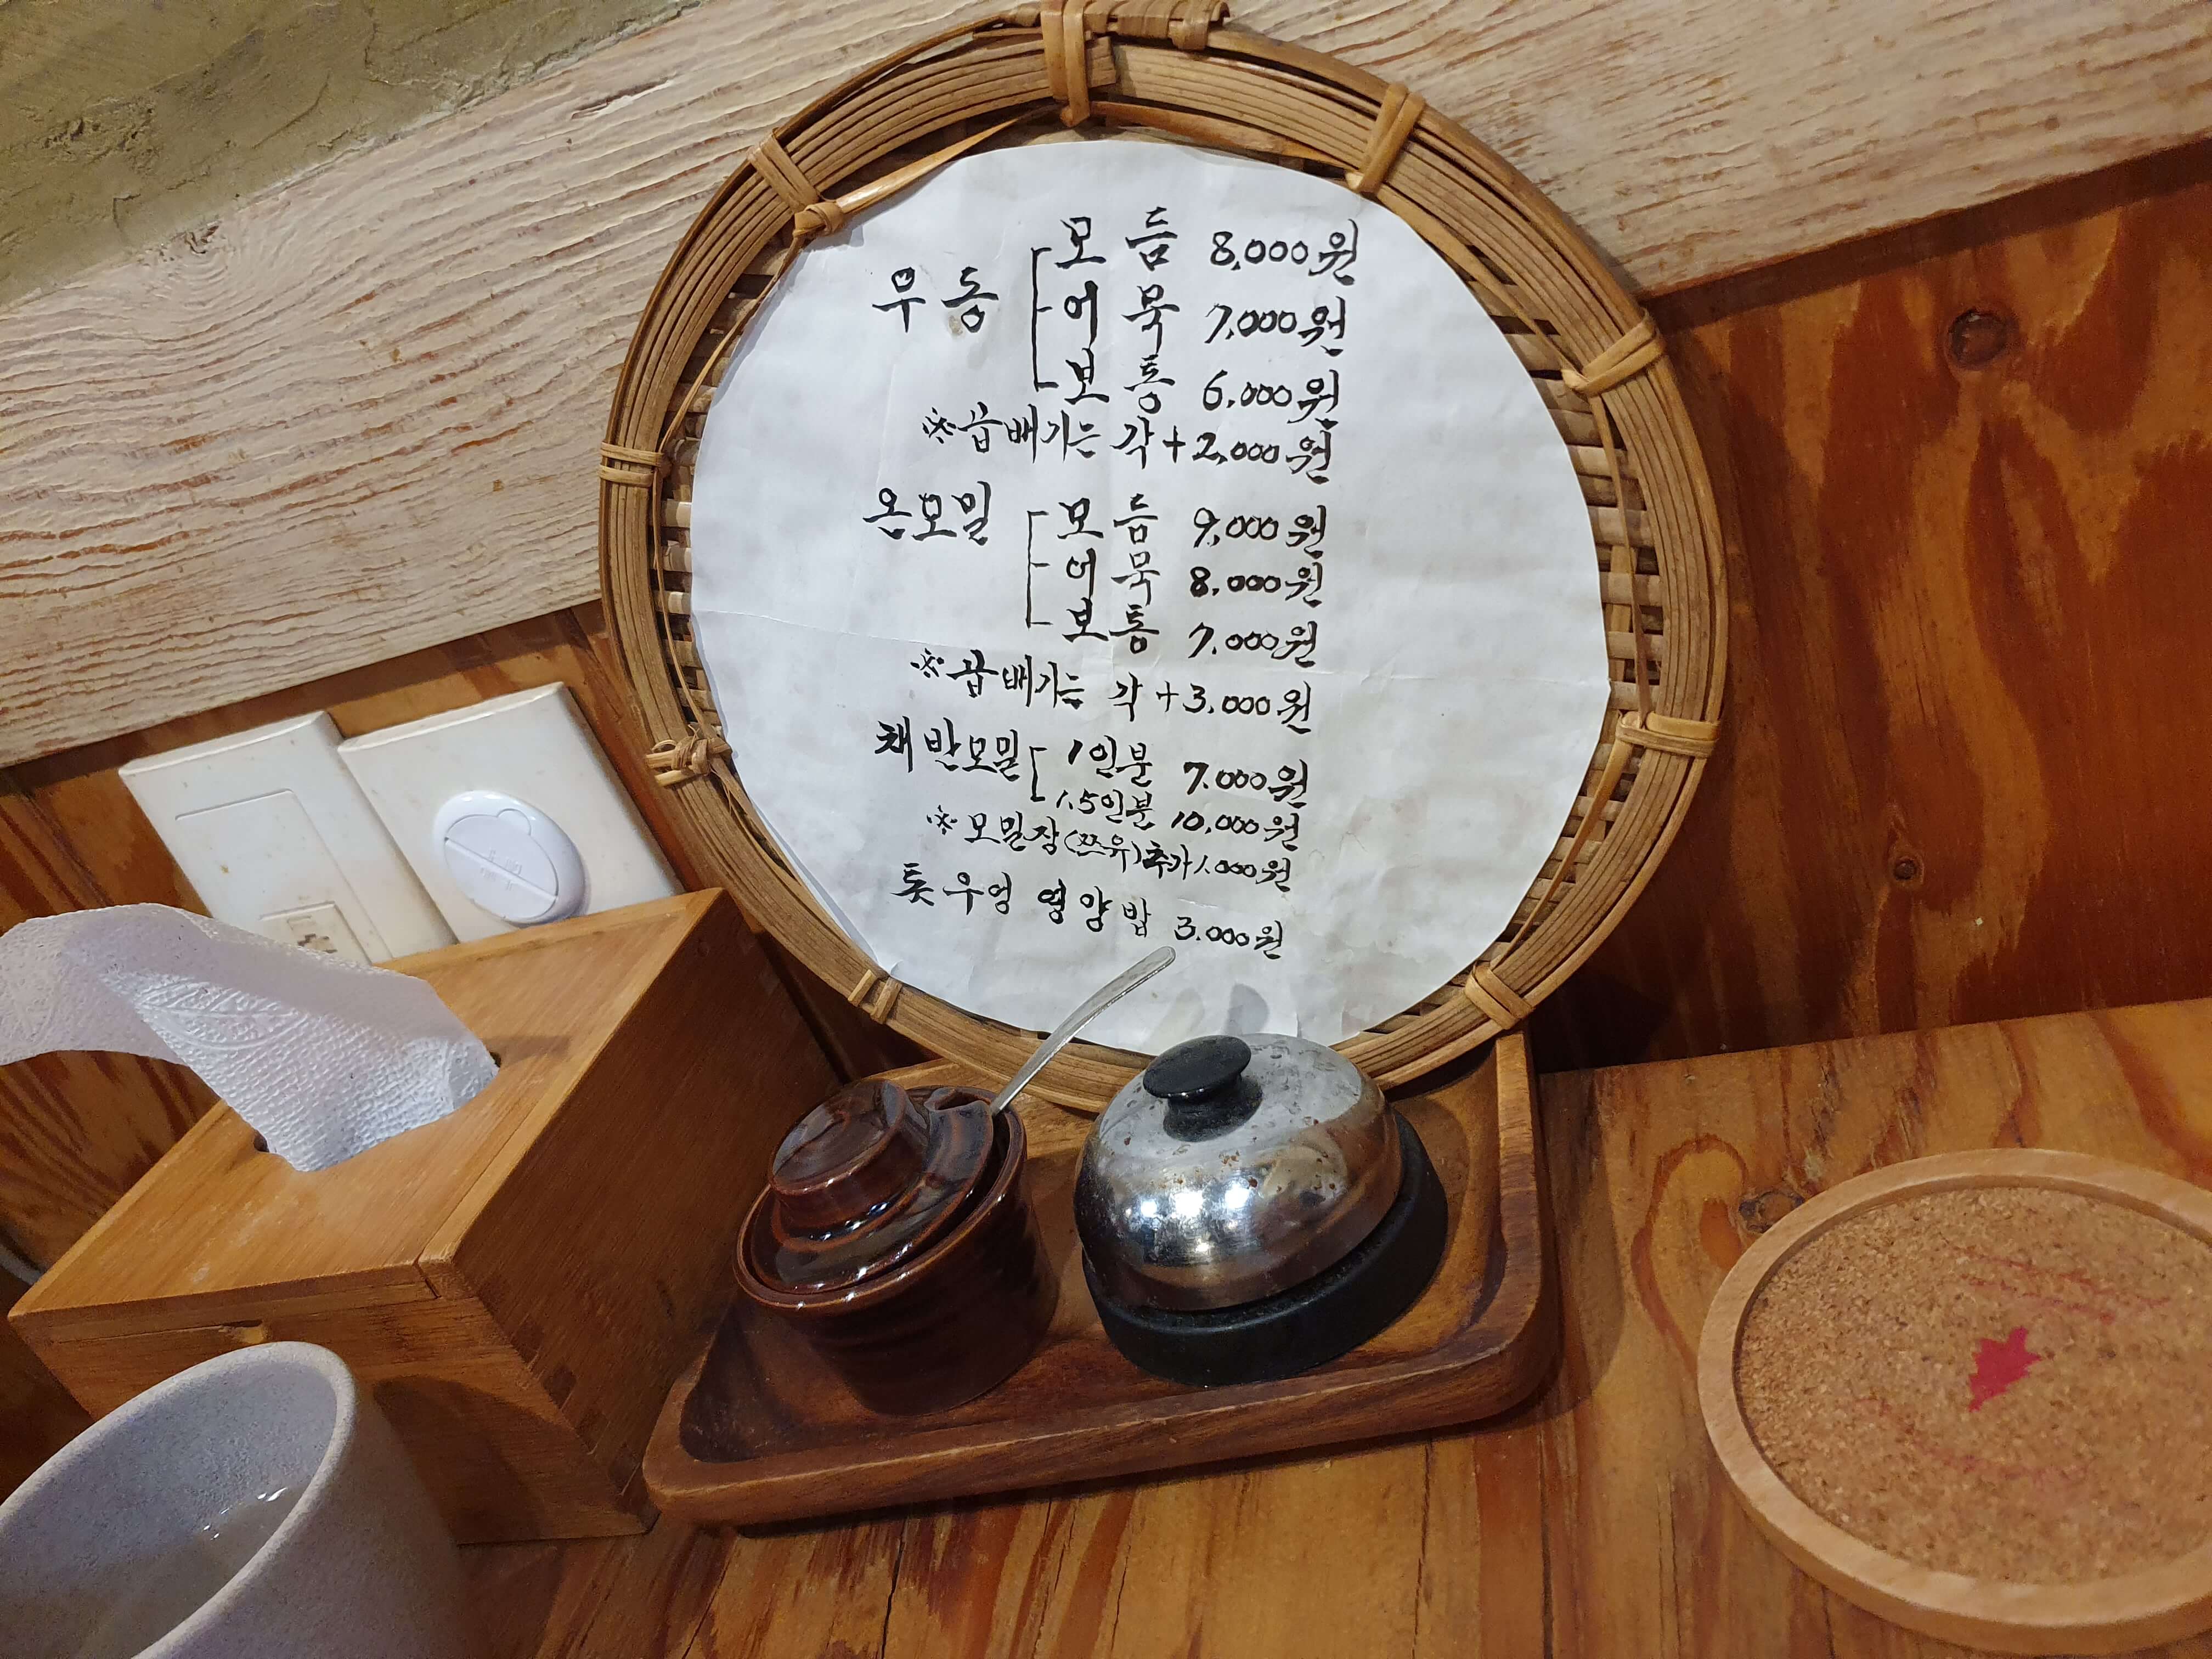 우동 모듬 8,000원
어묵 7,000원
보통 6,000원
※곱빼기는 각+2,000원
온모밀 모듬 9,000원
어묵 8,000원
보통 7,000원
※곱빼기는 각+3,000원
채반모밀 1인분 7,000원
1.5인분 10,000원
※모밀장(쯔유)추가 1,000원
톳우엉 영양밥 3,000원